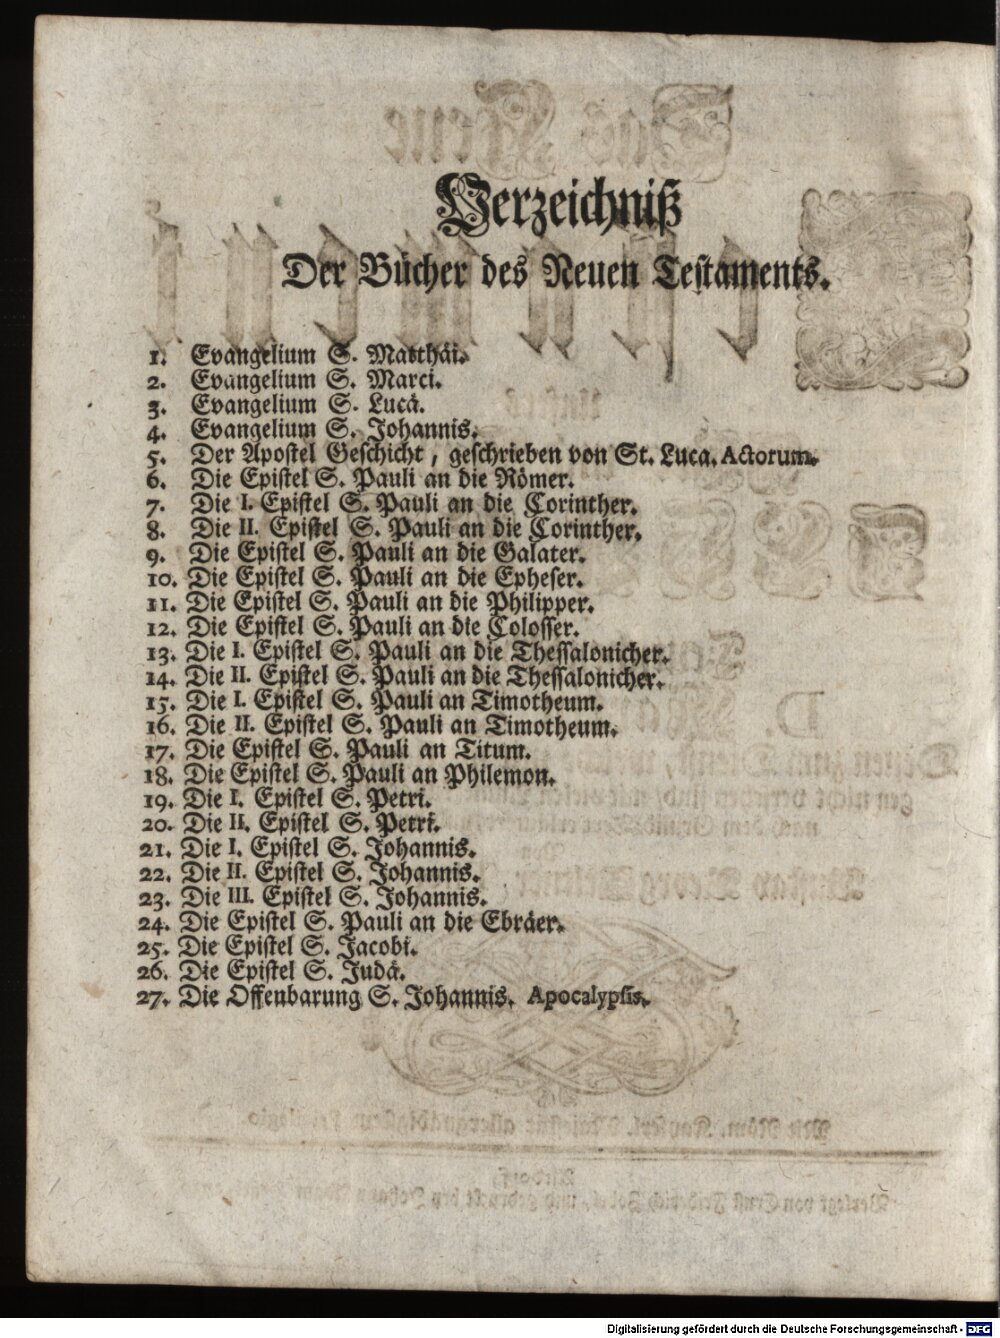 Verzeichniß
Der Bücher des Neuen Testaments.
1. Evangelium S. Matthäi.
2. Evangelium S. Marci.
3. Evangelium S. Lucä.
4. Evangelium S. Johannis.
5. Der Apostel Geschicht, geschrieben von St. Luca. Actorum.
6. Die Epistel S. Pauli an die Römer.
7. Die I. Epistel S. Pauli an die Corinther.
8. Die II. Epistel S. Pauli an die Corinther.
9. Die Epistel S. Pauli an die Galater.
10. Die Epistel S. Pauli an die Epheser.
11. Die Epistel S. Pauli an die Philipper.
12. Die Epistel S. Pauli an die Colosser.
13. Die I. Epistel S. Pauli an die Thessalonicher.
14. Die II. Epistel S. Pauli an die Thessalonicher.
15. Die I. Epistel S. Pauli an Timotheum.
16. Die II. Epistel S. Pauli an Timotheum.
17. Die Epistel S. Pauli an Titum.
18. Die Epistel S. Pauli an Philemon.
19. Die I. Epistel S. Petri.
20. Die II. Epistel S. Petri.
21. Die I. Epistel S. Johannis.
22. Die II. Epistel S. Johannis.
23. Die III. Epistel S. Johannis.
24. Die Epistel S. Pauli an die Ebräer.
25. Die Epistel S. Jacobi.
26. Die Epistel S. Judä.
27. Die Offenbarung S. Johannis. Apocalypsis.
Digitalisierung gefördert durch die Deutsche Forschungsgemeinschaft - DFG